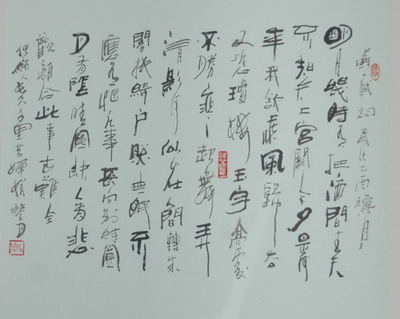 明月幾時有把酒問青天
不知天上宮闕今夕是何
年我欲乘風歸去
又恐瓊樓玉宇高處
不勝寒起舞弄
清影何似在人間轉朱
閣低綺戶照無眠不
應有恨何事長向別時圓
月有陰晴圓缺人有悲
歡離合此事古難全
但願人長久千里共嬋娟